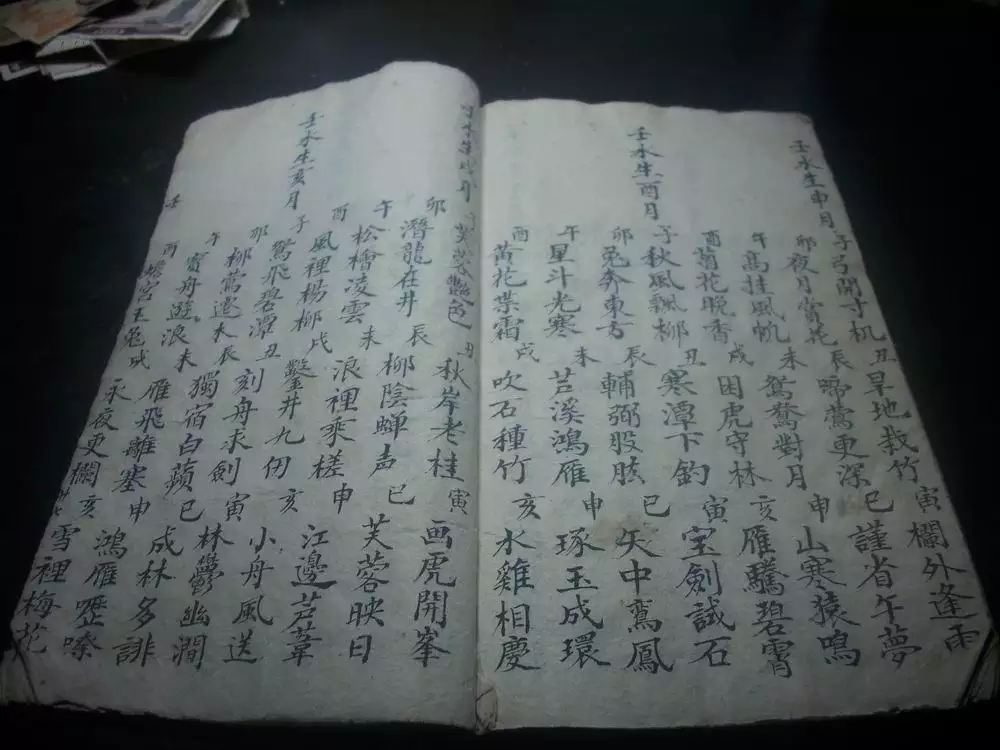 壬水生申月
子弓開寸机 丑旱地栽竹 寅欄外逢雨
卯夜月賞花 辰啼鶯更深 巳謹省午夢
午高挂風帆 未鴛鴦對月 申山寒猿鳴
酉菊花晚香 戌困虎守林 亥雁騰碧霄
壬水生酉月
子秋風飄柳 丑寒潭下釣 寅宝劍試石
卯兔奔東方 辰輔弼股肱 巳矢中鳳
午星斗光寒 未芦溪鴻雁 申琢玉成環
酉黄花霜 戌吹石種竹 亥水雞相慶
壬水生戌月
芙蓉艷色 丑秋岸老桂 寅画虎開峯
卯潛龍在井 辰柳陰蝉声 巳芙蓉映日
午松檜凌雲 未浪裡乘槎 申江邊芦葦
酉風裡楊柳 戌鑿井九仞 亥小舟風送
壬水生亥月
子鴛飛碧潭 丑刻舟求劍 寅林欝幽澗
卯柳鶯遷木 辰獨宿白蘋 巳成林多誹
午寶舟遊浪 未雁飛離塞 申鴻雁嚦嗦
酉蟾宮玉兔 戌永夜更欄 亥雪裡梅花
壬